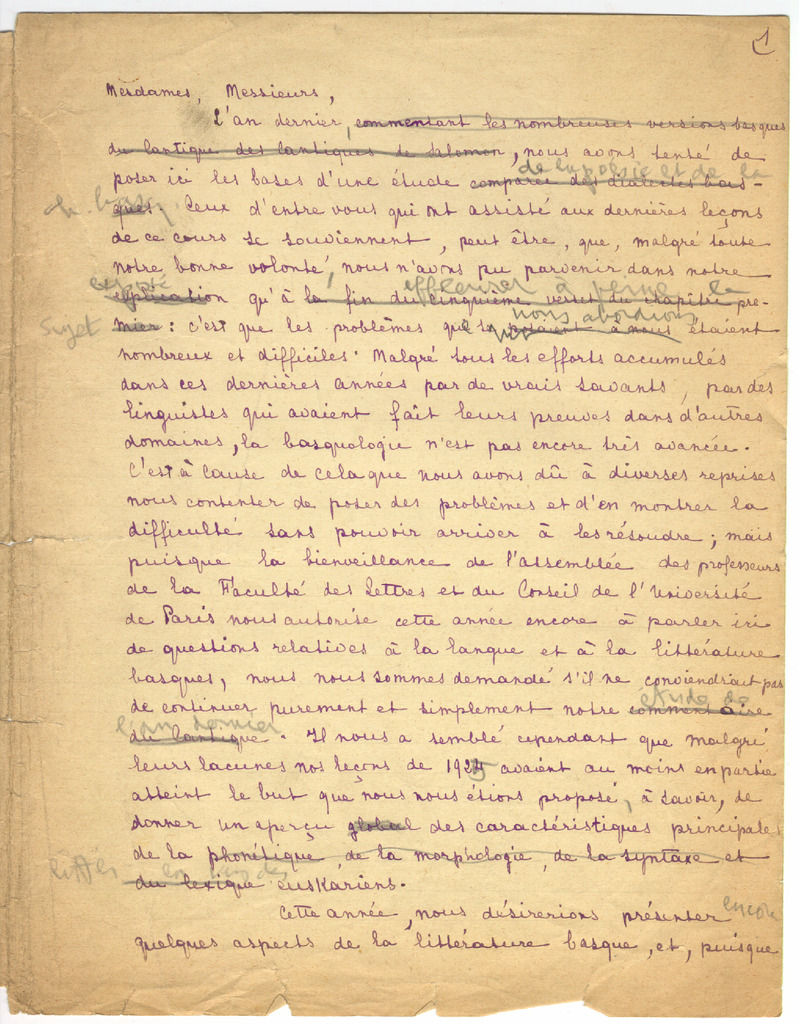 1
Mesdames, Messieurs,
L'an dernier, commentant les nombreuses versions basques
du Cantique des Cantiques de Salomon, nous avons tenté de
de la poésie et de la
poser ici les bases d'une étude comparée des dialectes bas-
ques. Ceux d'entre vous qui ont assisté aux dernières leçons
de ce cours se souviennent, peut être, que, malgré toute
notre bonne volonté, nous n'avons pu parvenir dans notre
exposé effleurer à peine le
explication qu'à la fin du cinquième verset du chapitre pre-
sujet nous abordions
mier : c'est que les problèmes qui se posaient à nous étaient
nombreux et difficiles. Malgré tous les efforts accumulés
dans ces dernières années par de vrais savants, par des
linguistes qui avaient fait leurs preuves dans d'autres
domaines, la basquologie n'est pas encore très avancée.
C'est à cause de cela que nous avons dû à diverses reprises
nous contenter de poser des problèmes et d'en montrer la
difficulté sans pouvoir arriver à les résoudre ; mais
puisque la bienveillance de l'assemblée des professeurs
de la Faculté des Lettres et du Conseil de l'Université
de Paris nous autorise cette année encore à parler ici
de questions relatives à la langue et à la littérature
basques, nous nous sommes demandé s'il ne conviendrait pas
étude de
de continuer purement et simplement notre commentaire
l'an dernier
du Cantique. Il nous a semblé cependant que malgré
leurs lacunes nos leçons de 1925 avaient au moins en partie
atteint le but que nous nous étions proposé, à savoir, de
donner un aperçu global des caractéristiques principales
de la phonétique, de la morphologie, de la syntaxe et
du lexique euskariens.
encore
Cette année, nous désirerions présenter
quelques aspects de la littérature basque, et, puisque